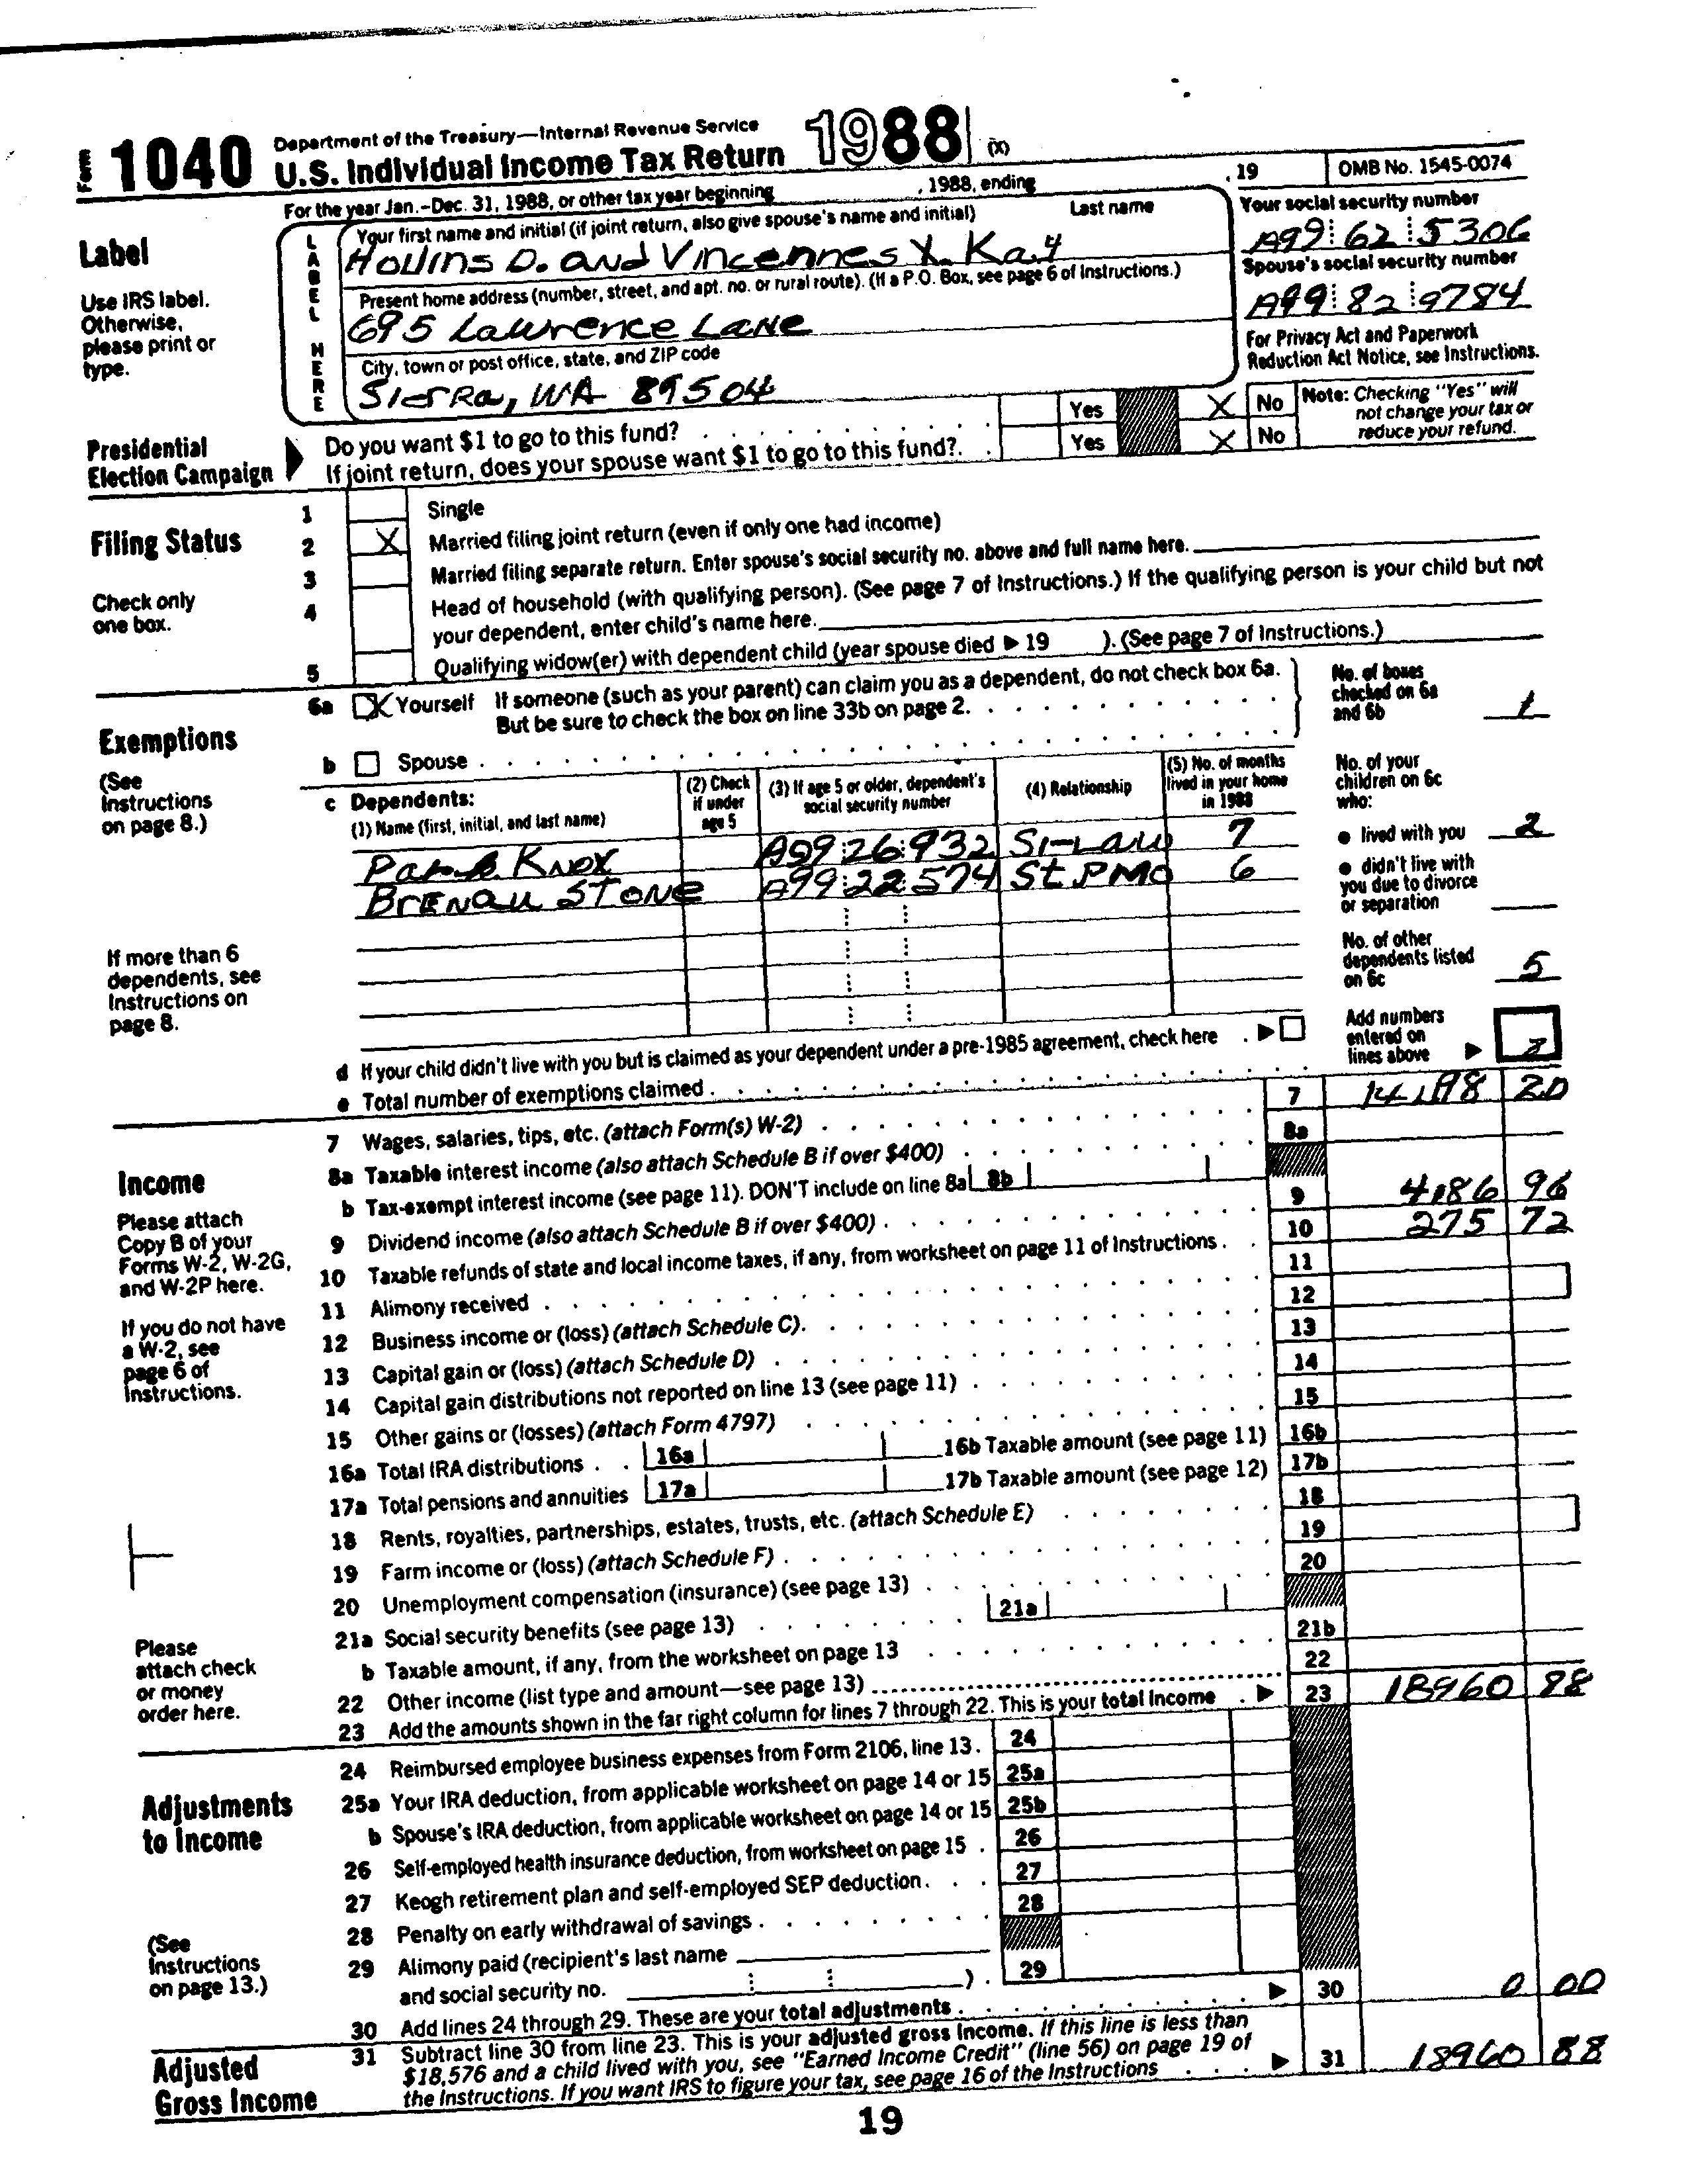 Form 1040 Department of the Treasury—Internal Revenue Service
U.S. Individual Income Tax Return 1988 (X)
For the year Jan.-Dec. 31, 1988, or other tax year beginning , 1988, ending , 19 OMB No. 1545-0074
Label
Use IRS label. Otherwise, please print or type.
LABEL HERE
Your first name and initial (if joint return, also give spouse's name and initial) Last name
Hollins D. and Vincennes X. Ka.4
Your social security number
A99 62 5306
Present home address (number, street, and apt. no. or rural route). (If a P.O. Box, see page 6 of Instructions.)
695 Lawrence Lane
Spouse's social security number
A99 82 9784
City, town or post office, state, and ZIP code
Sierra, WA 89504
For Privacy Act and Paperwork Reduction Act Notice, see Instructions.
Presidential Election Campaign
Do you want $1 to go to this fund? Yes X No
If joint return, does your spouse want $1 to go to this fund? Yes X No
Note: Checking "Yes" will not change your tax or reduce your refund.
Filing Status
Check only one box.
1 Single
2 X Married filing joint return (even if only one had income)
3 Married filing separate return. Enter spouse's social security no. above and full name here.
4 Head of household (with qualifying person). (See page 7 of Instructions.) If the qualifying person is your child but not
your dependent, enter child's name here.
5 Qualifying widow(er) with dependent child (year spouse died ▶ 19 ). (See page 7 of Instructions.)
Exemptions
(See Instructions on page 8.)
6a X Yourself If someone (such as your parent) can claim you as a dependent, do not check box 6a.
But be sure to check the box on line 33b on page 2.
b Spouse
No. of boxes checked on 6a and 6b 1
c Dependents:
(1) Name (first, initial, and last name) (2) Check if under age 5 (3) If age 5 or older, dependent's social security number (4) Relationship (5) No. of months lived in your home in 1988
Knox A99 26 932 SI-Law 7
Brenau Stone A99 22 574 St.PMo 6
No. of your children on 6c who:
● lived with you 2
● didn't live with you due to divorce or separation
No. of other dependents listed on 6c 5
If more than 6 dependents, see Instructions on page 8.
d If your child didn't live with you but is claimed as your dependent under a pre-1985 agreement, check here ▶
e Total number of exemptions claimed
Add numbers entered on lines above ▶
Income
Please attach Copy B of your Forms W-2, W-2G, and W-2P here.
If you do not have a W-2, see page 6 of Instructions.
7 Wages, salaries, tips, etc. (attach Form(s) W-2) 7 20
8a Taxable interest income (also attach Schedule B if over $400) 8a
b Tax-exempt interest income (see page 11). DON'T include on line 8a 8b
9 Dividend income (also attach Schedule B if over $400) 9 4,186 96
10 Taxable refunds of state and local income taxes, if any, from worksheet on page 11 of Instructions 10 275 72
11 Alimony received 11
12 Business income or (loss) (attach Schedule C) 12
13 Capital gain or (loss) (attach Schedule D) 13
14 Capital gain distributions not reported on line 13 (see page 11) 14
15 Other gains or (losses) (attach Form 4797) 15
16a Total IRA distributions 16a 16b Taxable amount (see page 11) 16b
17a Total pensions and annuities 17a 17b Taxable amount (see page 12) 17b
18 Rents, royalties, partnerships, estates, trusts, etc. (attach Schedule E) 18
19 Farm income or (loss) (attach Schedule F) 19
20 Unemployment compensation (insurance) (see page 13) 20
21a Social security benefits (see page 13) 21a
b Taxable amount, if any, from the worksheet on page 13 21b
22 Other income (list type and amount—see page 13) 22
23 Add the amounts shown in the far right column for lines 7 through 22. This is your total income ▶ 23 18960 88
Please attach check or money order here.
Adjustments to Income
(See Instructions on page 13.)
24 Reimbursed employee business expenses from Form 2106, line 13. 24
25a Your IRA deduction, from applicable worksheet on page 14 or 15 25a
b Spouse's IRA deduction, from applicable worksheet on page 14 or 15 25b
26 Self-employed health insurance deduction, from worksheet on page 15 26
27 Keogh retirement plan and self-employed SEP deduction 27
28 Penalty on early withdrawal of savings 28
29 Alimony paid (recipient's last name
and social security no. ) 29
30 Add lines 24 through 29. These are your total adjustments ▶ 30 0 00
Adjusted Gross Income
31 Subtract line 30 from line 23. This is your adjusted gross income. If this line is less than
$18,576 and a child lived with you, see "Earned Income Credit" (line 56) on page 19 of
the Instructions. If you want IRS to figure your tax, see page 16 of the Instructions ▶ 31 18960 88
19